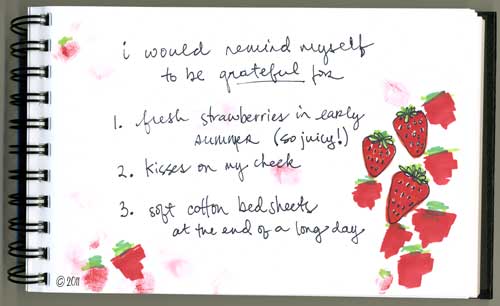 i would remind myself
to be grateful for
1. fresh strawberries in early
summer (so juicy!)
2. kisses on my cheek
3. soft cotton bedsheets
at the end of a long day
© 2011